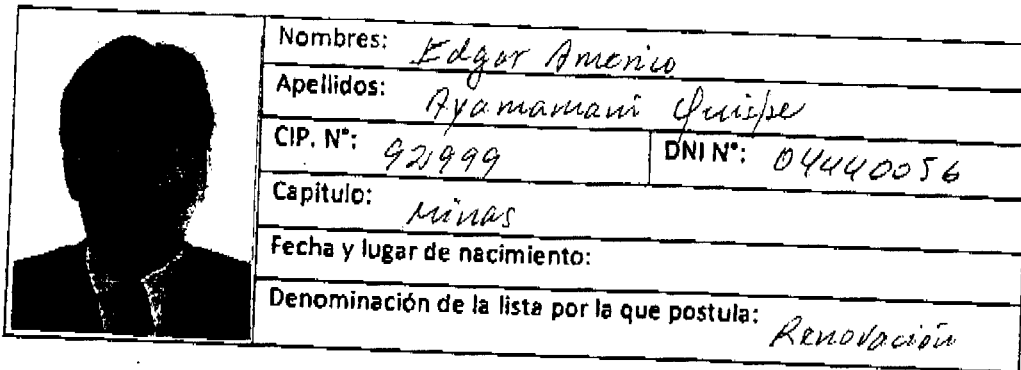 Nombres: Edgar Americo
Apellidos: Ayamamani Quispe
CIP. N°: 92999 DNI N°: 04440056
Capitulo: Minas
Fecha y lugar de nacimiento:
Denominación de la lista por la que postula: Renovación